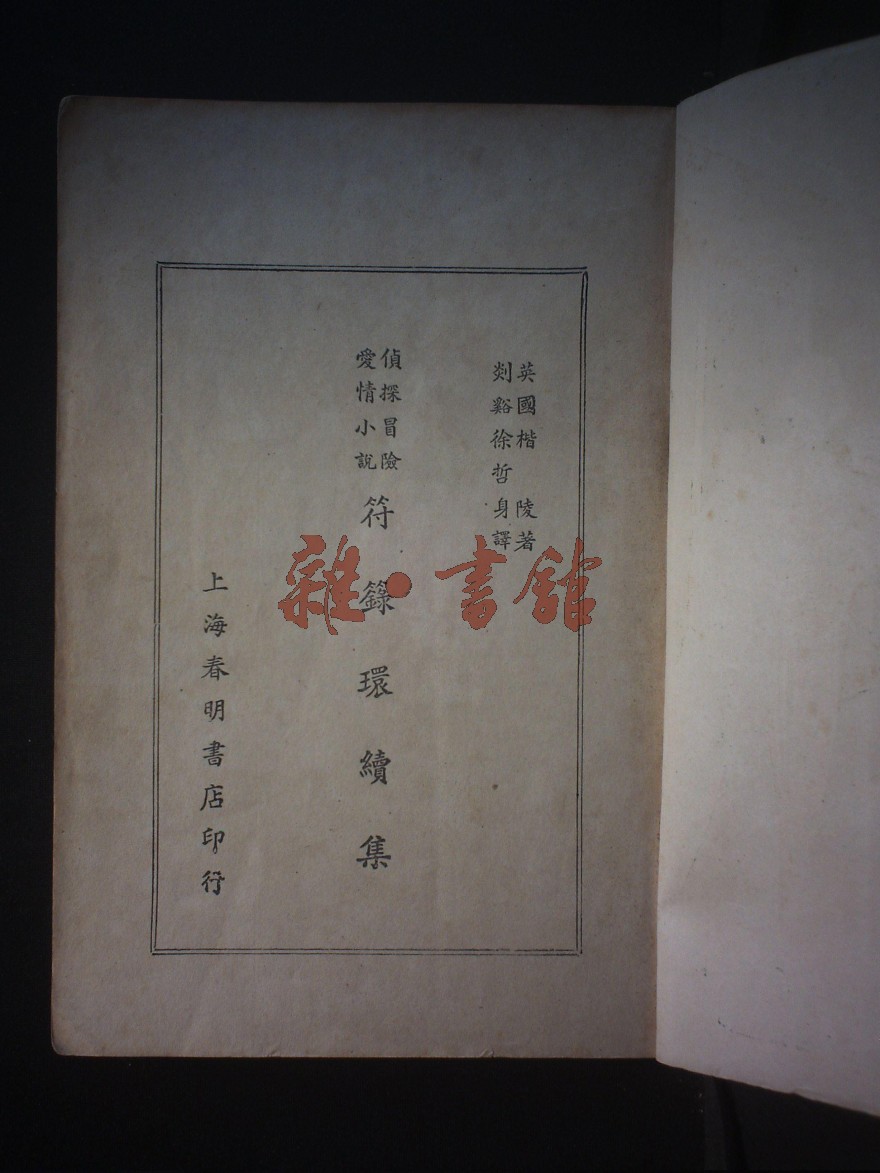 英國楷陵著
剡谿徐哲身譯
偵探冒險
愛情小說
符籙環續集
上海春明書店印行
雜·書館